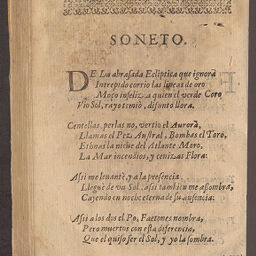 SONETO.
DE La abrasada Ecliptica que ignora
Intrepido corrio las lineas de oro
Moço infeliz, a quien el verde Coro
Vio Sol, rayo tremió, difunto llora.
Centellas, perlas no, vertio el Aurora,
Llamas el Pez Austral, Bombas el Toro,
Etnas la nieue del Atlante Moro,
La Mar incendios, y cenizas Flora.
Assi me leuantè, y a la presencia
Lleguè de vn Sol, assi tambien me assombra,
Cayendo en noche eterna de su ausencia:
Assi a los dos el Po, Faetones nombra,
Pero muertos con esta diferencia,
Que el quiso ser el Sol, y yo la sombra.